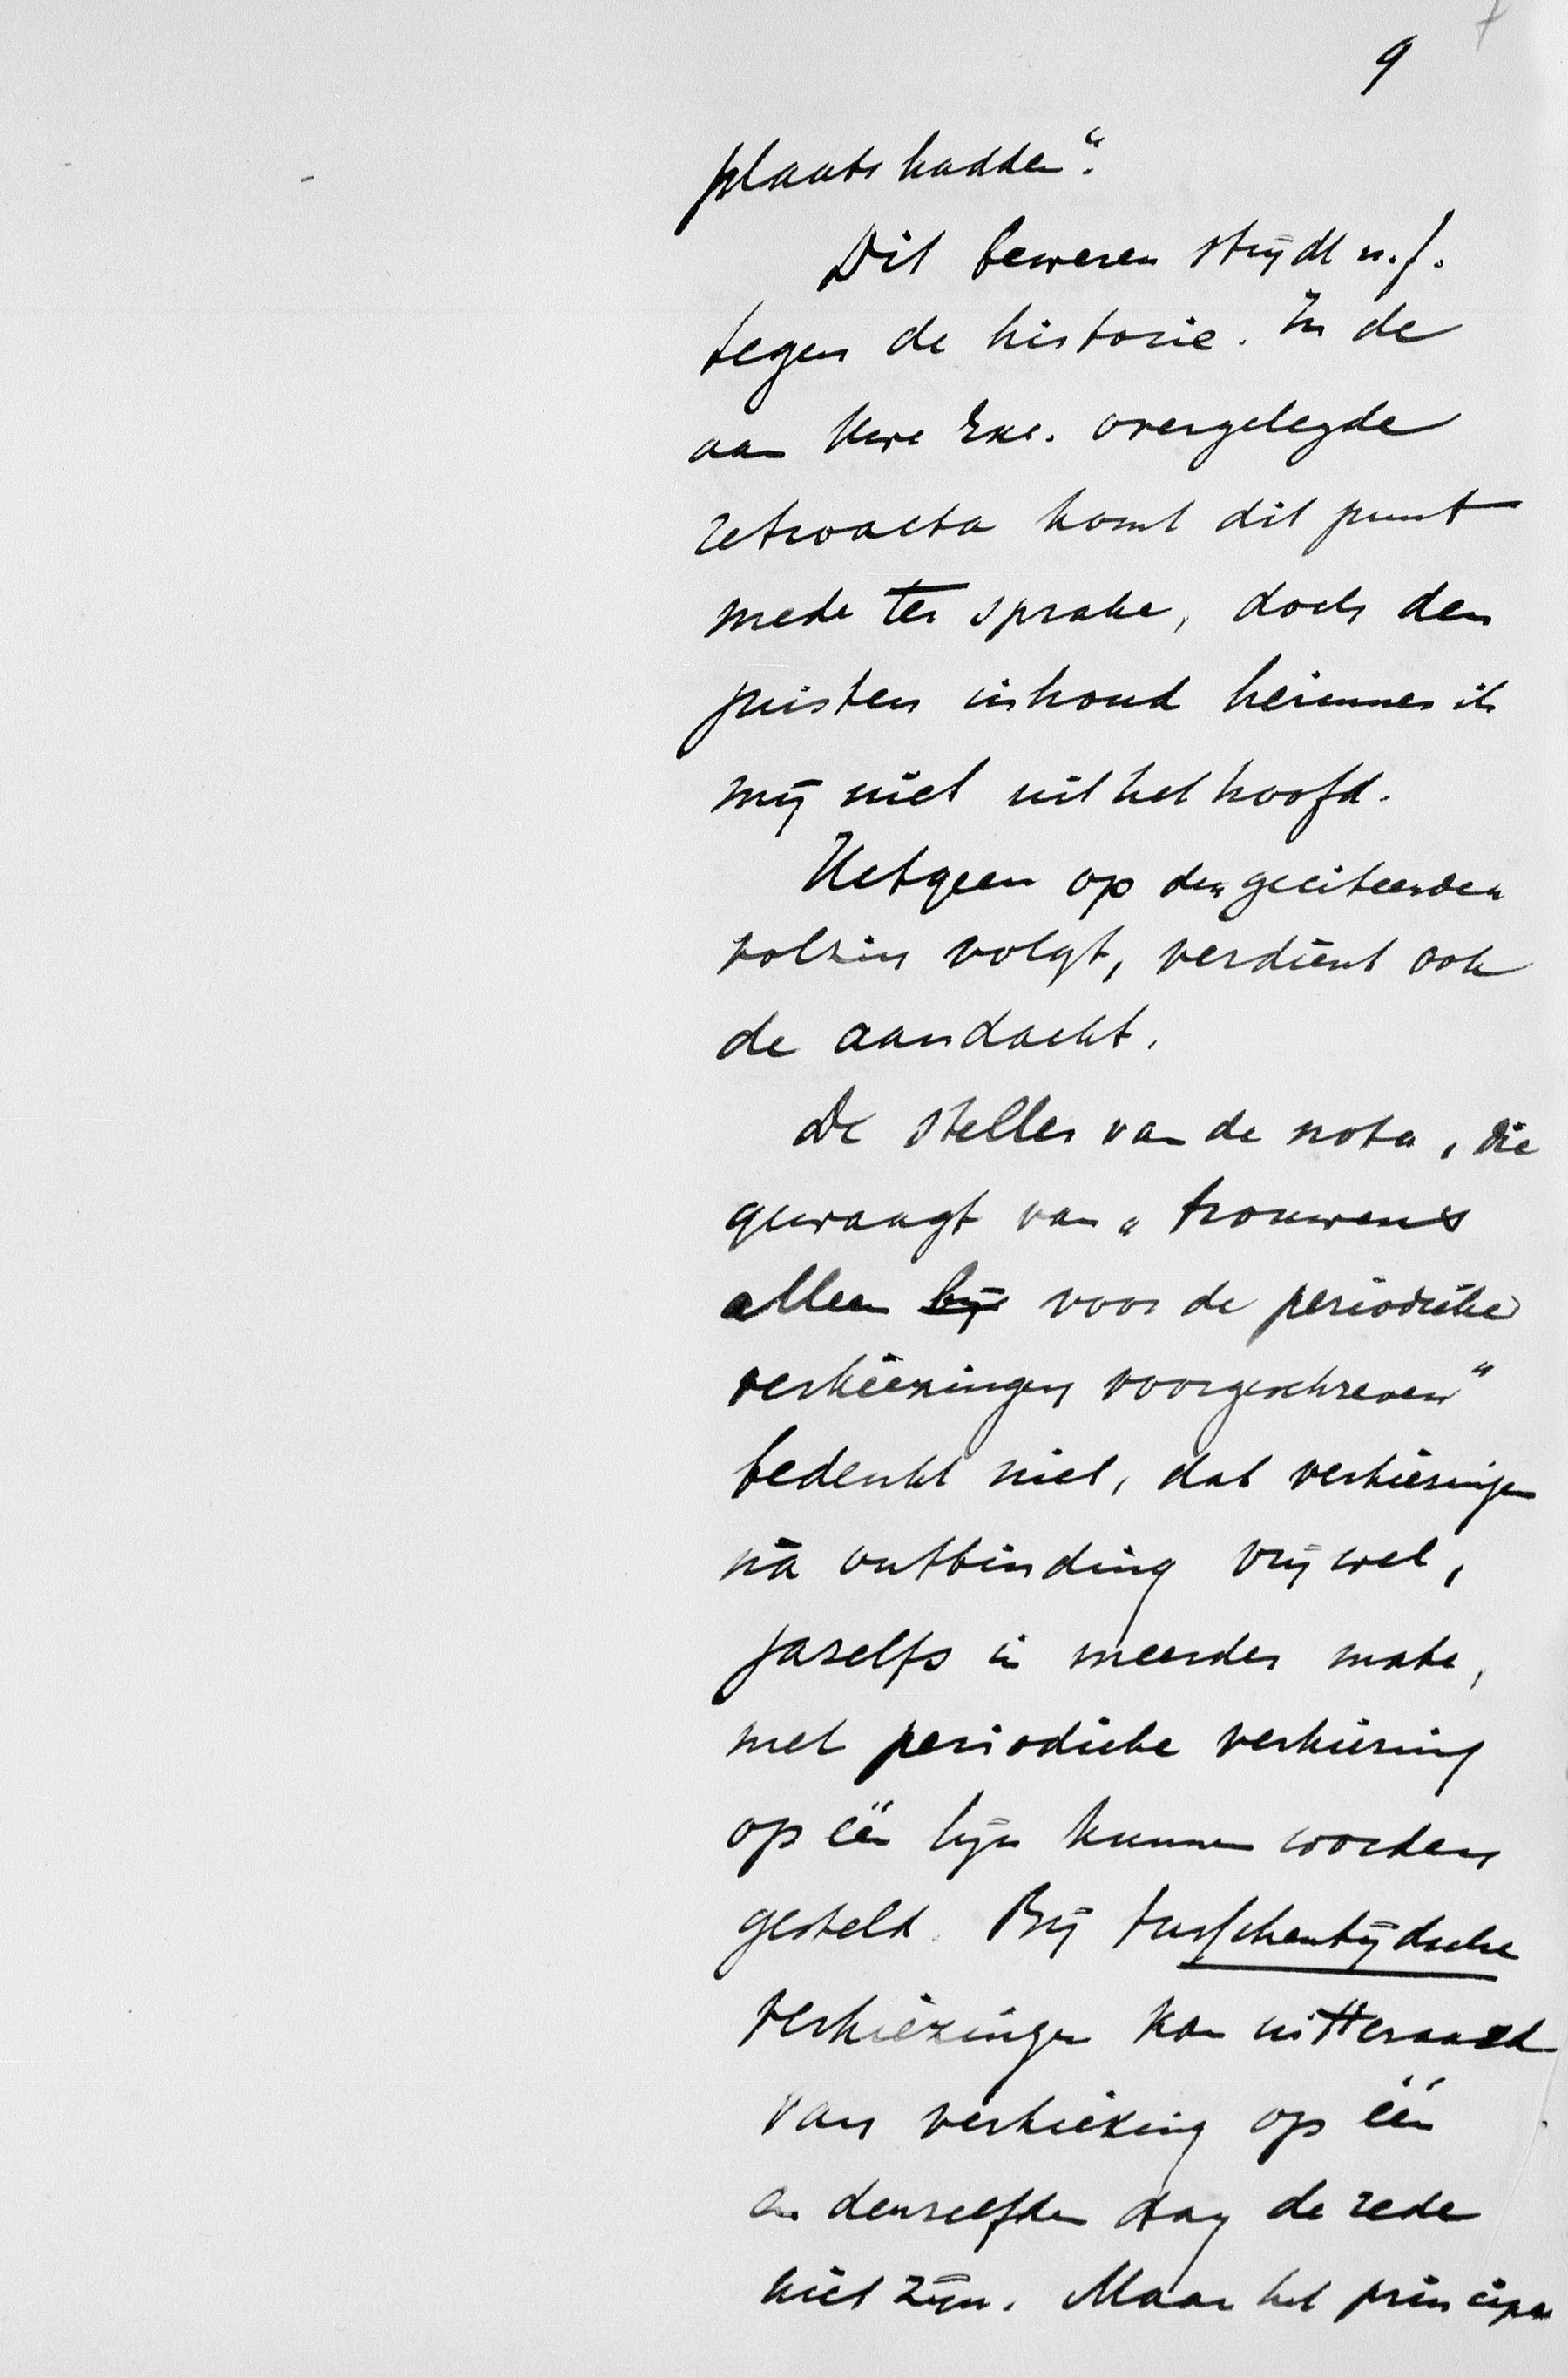 9
plaats hadden“.
Dit beweren strijdt m.i.
tegen de historie. In de
aan Uwe Exc. overgelegde
retroacta komt dit punt
mede ter sprake, doch den
juisten inhoud herinner ik
mij niet uit het hoofd.
Hetgeen op den geciteerden
volzin volgt, verdient ook
de aandacht.
De steller van de nota, die
gewaagt van „trouwens
alleen bij voor de periodieke
verkiezingen voorgeschreven“
bedenkt niet, dat verkiezingen
na ontbinding vrijwel,
jazelfs in meerder mate,
met periodieke verkiezing
op één lijn kunnen worden
gesteld. Bij tusschentijdsche
verkiezingen kan uitteraard
van verkiezing op één
en denzelfden dag de rede
niet zijn. Maar het principe